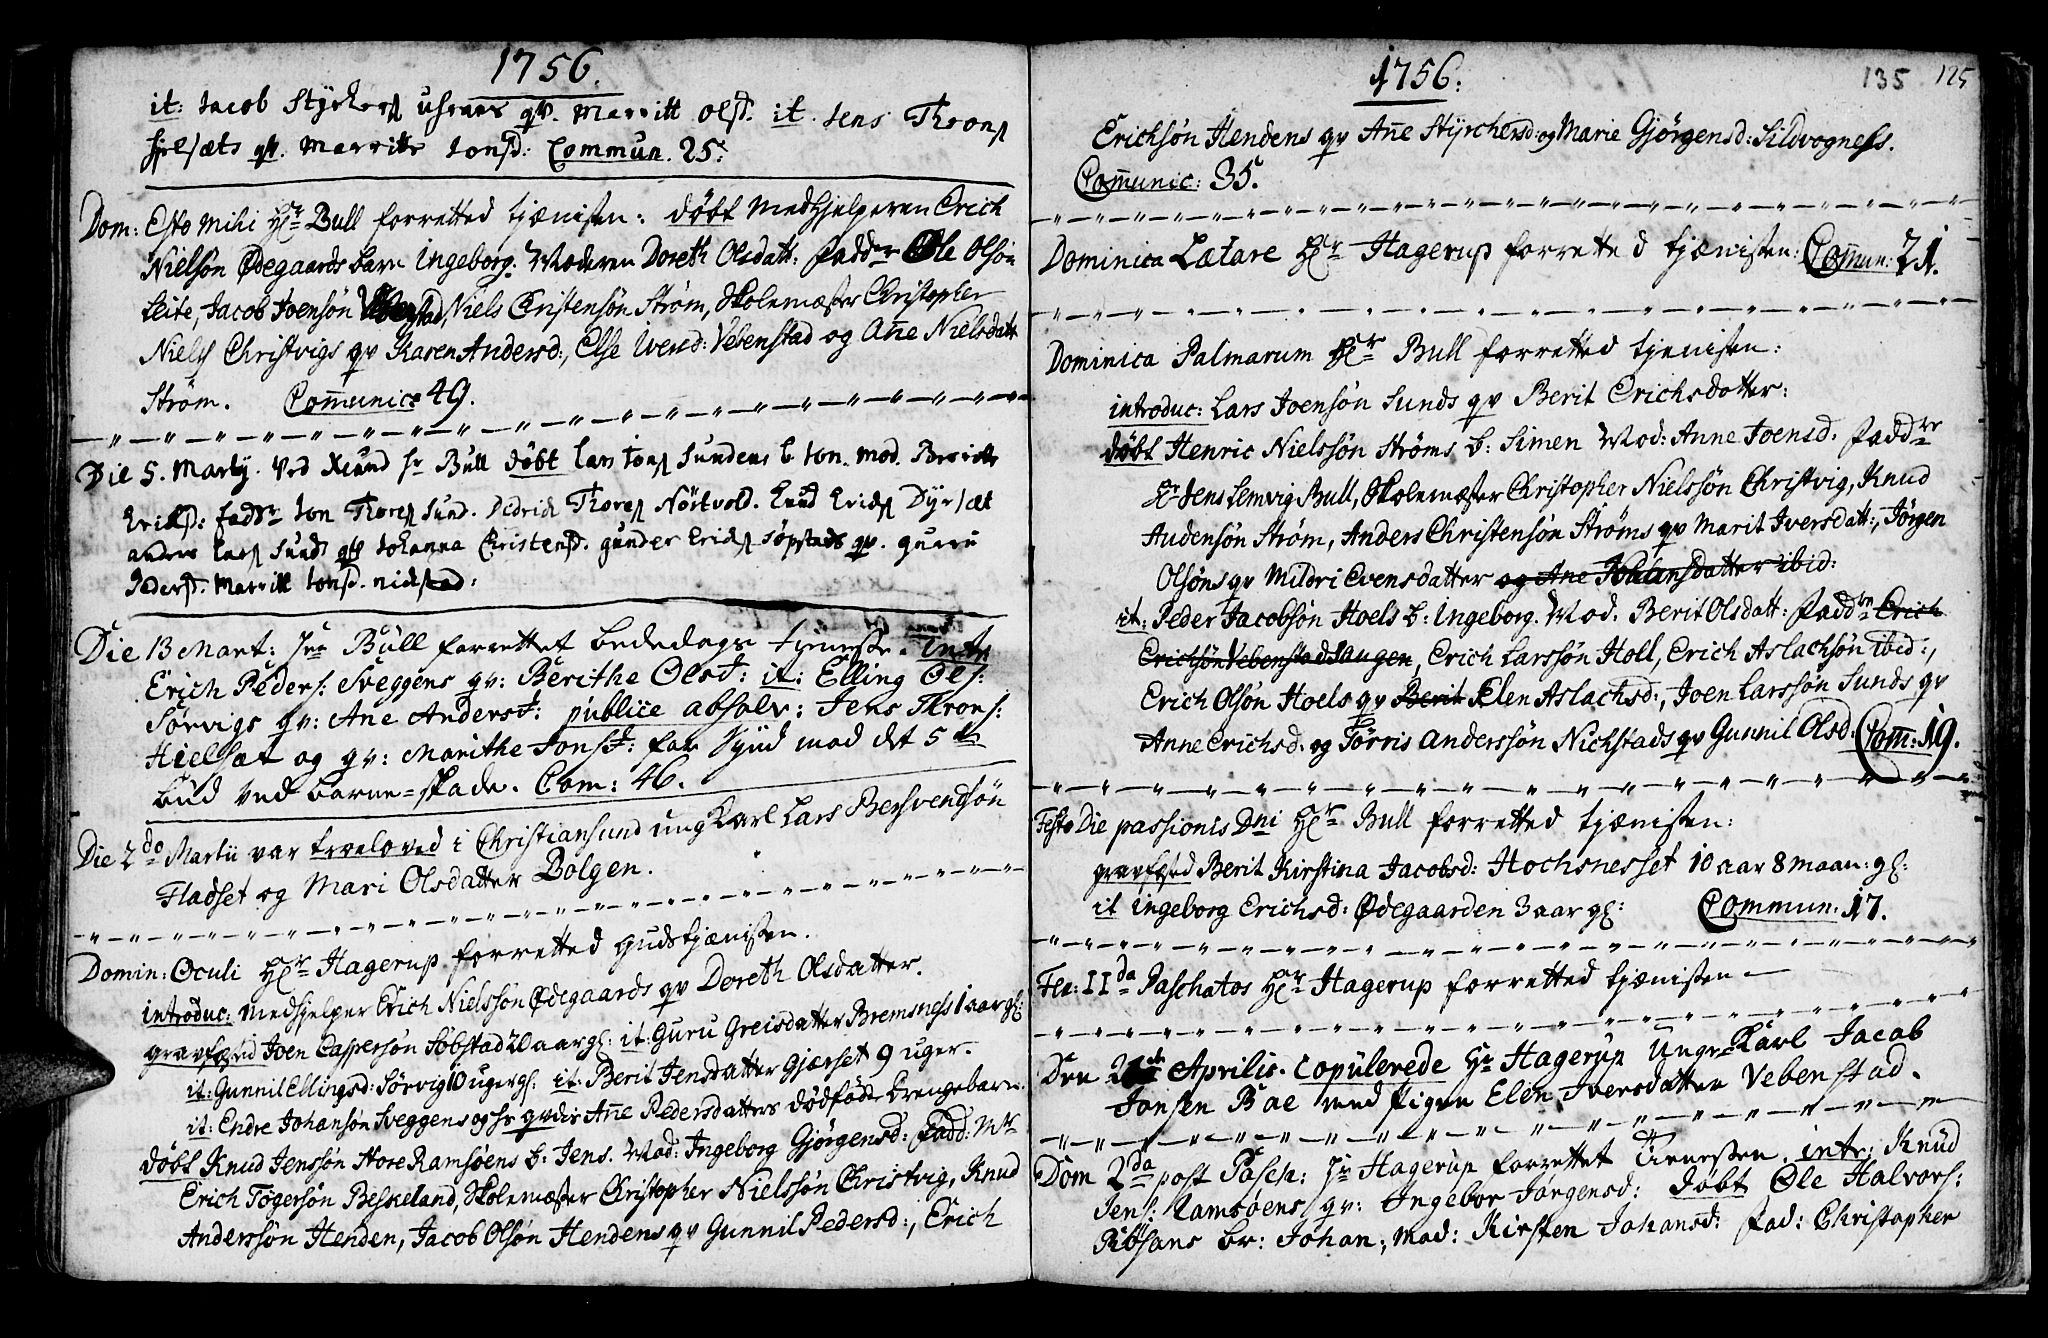 1756.
it: Jacob Styrkers Uhrnes qv. Marritt Olsd. it. Jens Throns
hielsæts qv. Marrithe Jonsd: Commun. 25.
Dom: Esto Mihi Hr Bull forretted tjænisten: døbt Medhjelperen Erich
Nielsøn Ødegaards barn Ingeborg. Moderen Doreth Olsdatt: Faddre Ole Olsøn
Leite, Jacob Joensøn Vebenstad, Niels Christensøn Strøm, Skolemæster Christopher
Niels Christvigs qv Karen Andersd:, Else Iverd: Vebenstad og Ane Nielsdatt
Strøm. Communice 49.
Die 5. Martij. Ved Xsund hr Bull døbt Lars Jons Sundens b. Jon. mod. Berritte
Erichsd: fadre Jon Thores Sund. Didrich Thores Nörtvold. Knud Erichs Dyrsæt
anders Lars Sunds qv Johanna Christensd. gunder Erichs Söpstads qv. gurru
Peders. Marritt Jonsd. nichstad:
Die 13 Mart: Hr Bull forrettet bededags tjeneste. Intr
Erich Peders: Sveggens qv: Berithe Olsd: it: Elling Ols:
Sørvigs qv: Ane Andersd: publice absolv: Jens Throns:
Hielsæt og qv: Marithe Jonsd: for Synd mod det 5te
bud ved barne-skade. Com: 46.
Die 2do Martii var troeloved i Christiansund ungKarl Lars Bersvendsøn
Fladset og Mari Olsdatter Bølgen.
Domin: Oculi Hr Hagerup forretted gudstjænisten.
introduc: Medhjelper Erich Nielssøn Ødegaards qv Doreth Olsdatter.
gravfæsted Joen Caspersøn Søbstad 20 aar gl: it: Guru Greisdatter Bremsnes 1 aar gl:
it: Gunnil Ellingsd: Sørvig 10 uger gl: it: Berit Jensdatter Gjærset 9 uger.
it: Endre Johansøn Sveggens og hs qvdis Ane Pedersdatters dødfødte Drengebarn.
døbt Knud Jenssøn Store Ramsøens b: Jens. Mod: Ingeborg Gjørgensd: Fadd: Mr
Erich Tøgersøn Beskeland, Skolemæster Christopher Nielssøn Christvig, Knud
Anderssøn Henden, Jacob Olsøn Hendens qv Gunnil Pedersd:, Erich
1756.
135 125
Erichsøn Hendens qv Ane Styrchersd: og Marie Gjørgensd: Sildvogness.
Comunic: 35.
Dominica Lætare Hr Hagerup forretted tjænisten: Comun: 21.
Dominica Palmarum Hr Bull forretted tjenisten:
introduc: Lars Joensøn Sunds qv Berit Erichsdatter:
døbt Henric Nielssøn Strøms b: Simen Mod: Anne Joensd. Faddre
Hr Jens Lemvig Bull, Skolemæster Christopher Nielssøn Christvig, Knud
Audensøn Strøm, Anders Christensøn Strøms qv Marit Iversdatt:, Jørgen
Olsøns qv Mildri Evensdatter og Ane Johansdatter ibid:
it: Peder Jacobsøn Hoels b: Ingeborg. Mod. Berit Olsdatt: Faddre Erich
Erichsøn Vebenstad, Erich Larssøn Holl, Erich Aslachsøn ibid:,
Erich Olsøn Hoels qv Berit Elen Aslachsd:, Joen Larssøn Sunds qv
Anne Erichsd. og Törris Anderssøn Nichstads qv Gunnil Olsd. Com: 19.
Festo Die passionis Dni Hr Bull forretted tjænisten:
gravfæsted Berit Kirstina Jacobsd: Hochsnesset 10 aar 8 maan: gl:
it Ingeborg Erichsd: Ødegaarden 3 aar gl: Commun: 17.
Fer: IIda Paschatos Hr Hagerup forretted tjænisten
Den Aprilis. copulerede Hr Hagerup Unge-Karl Jacob
Jonsen Bae med Pigen Elen Iversdatter Vebenstad.
Dom 2da post Pasch: Hr Hagerup forrettet Tienesten. intr: Knud
Jens: Ramsøens qv: Ingebor Jørgensd: døbt Ole Halvors:
Ribsans br: Johan; Mod: Kirsten Johansd: Fad: Christopher